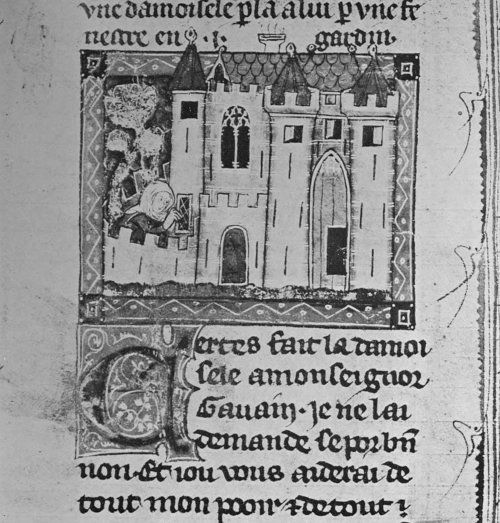 vne damoisele pla a lui p vne fe
nestre en .i. gardin.
Certes fait la damoi
sele a monseignor
Gauain. ie ne lai
demande se por bn̄
non. Et iou vous aiderai de
tout mon pooir ⁊ de tout